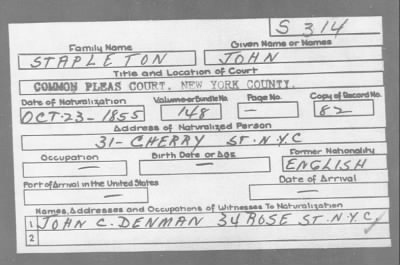 S 314
Family Name Given Name or Names
STAPLETON JOHN
Title and Location of Court
COMMON PLEAS COURT, NEW YORK COUNTY.
Date of Naturalization Volume or Bundle No. Page No. Copy of Record No.
OCT-23-1855 148 — 82
Address of Naturalized Person
31- CHERRY ST. N.Y.C
Occupation Birth Date or Age Former Nationality
— — ENGLISH
Port of Arrival in the United States Date of Arrival
— —
Names, Addresses and Occupations of Witnesses To Naturalization
1 JOHN C. DENMAN 34 ROSE ST. N.Y.C,
2